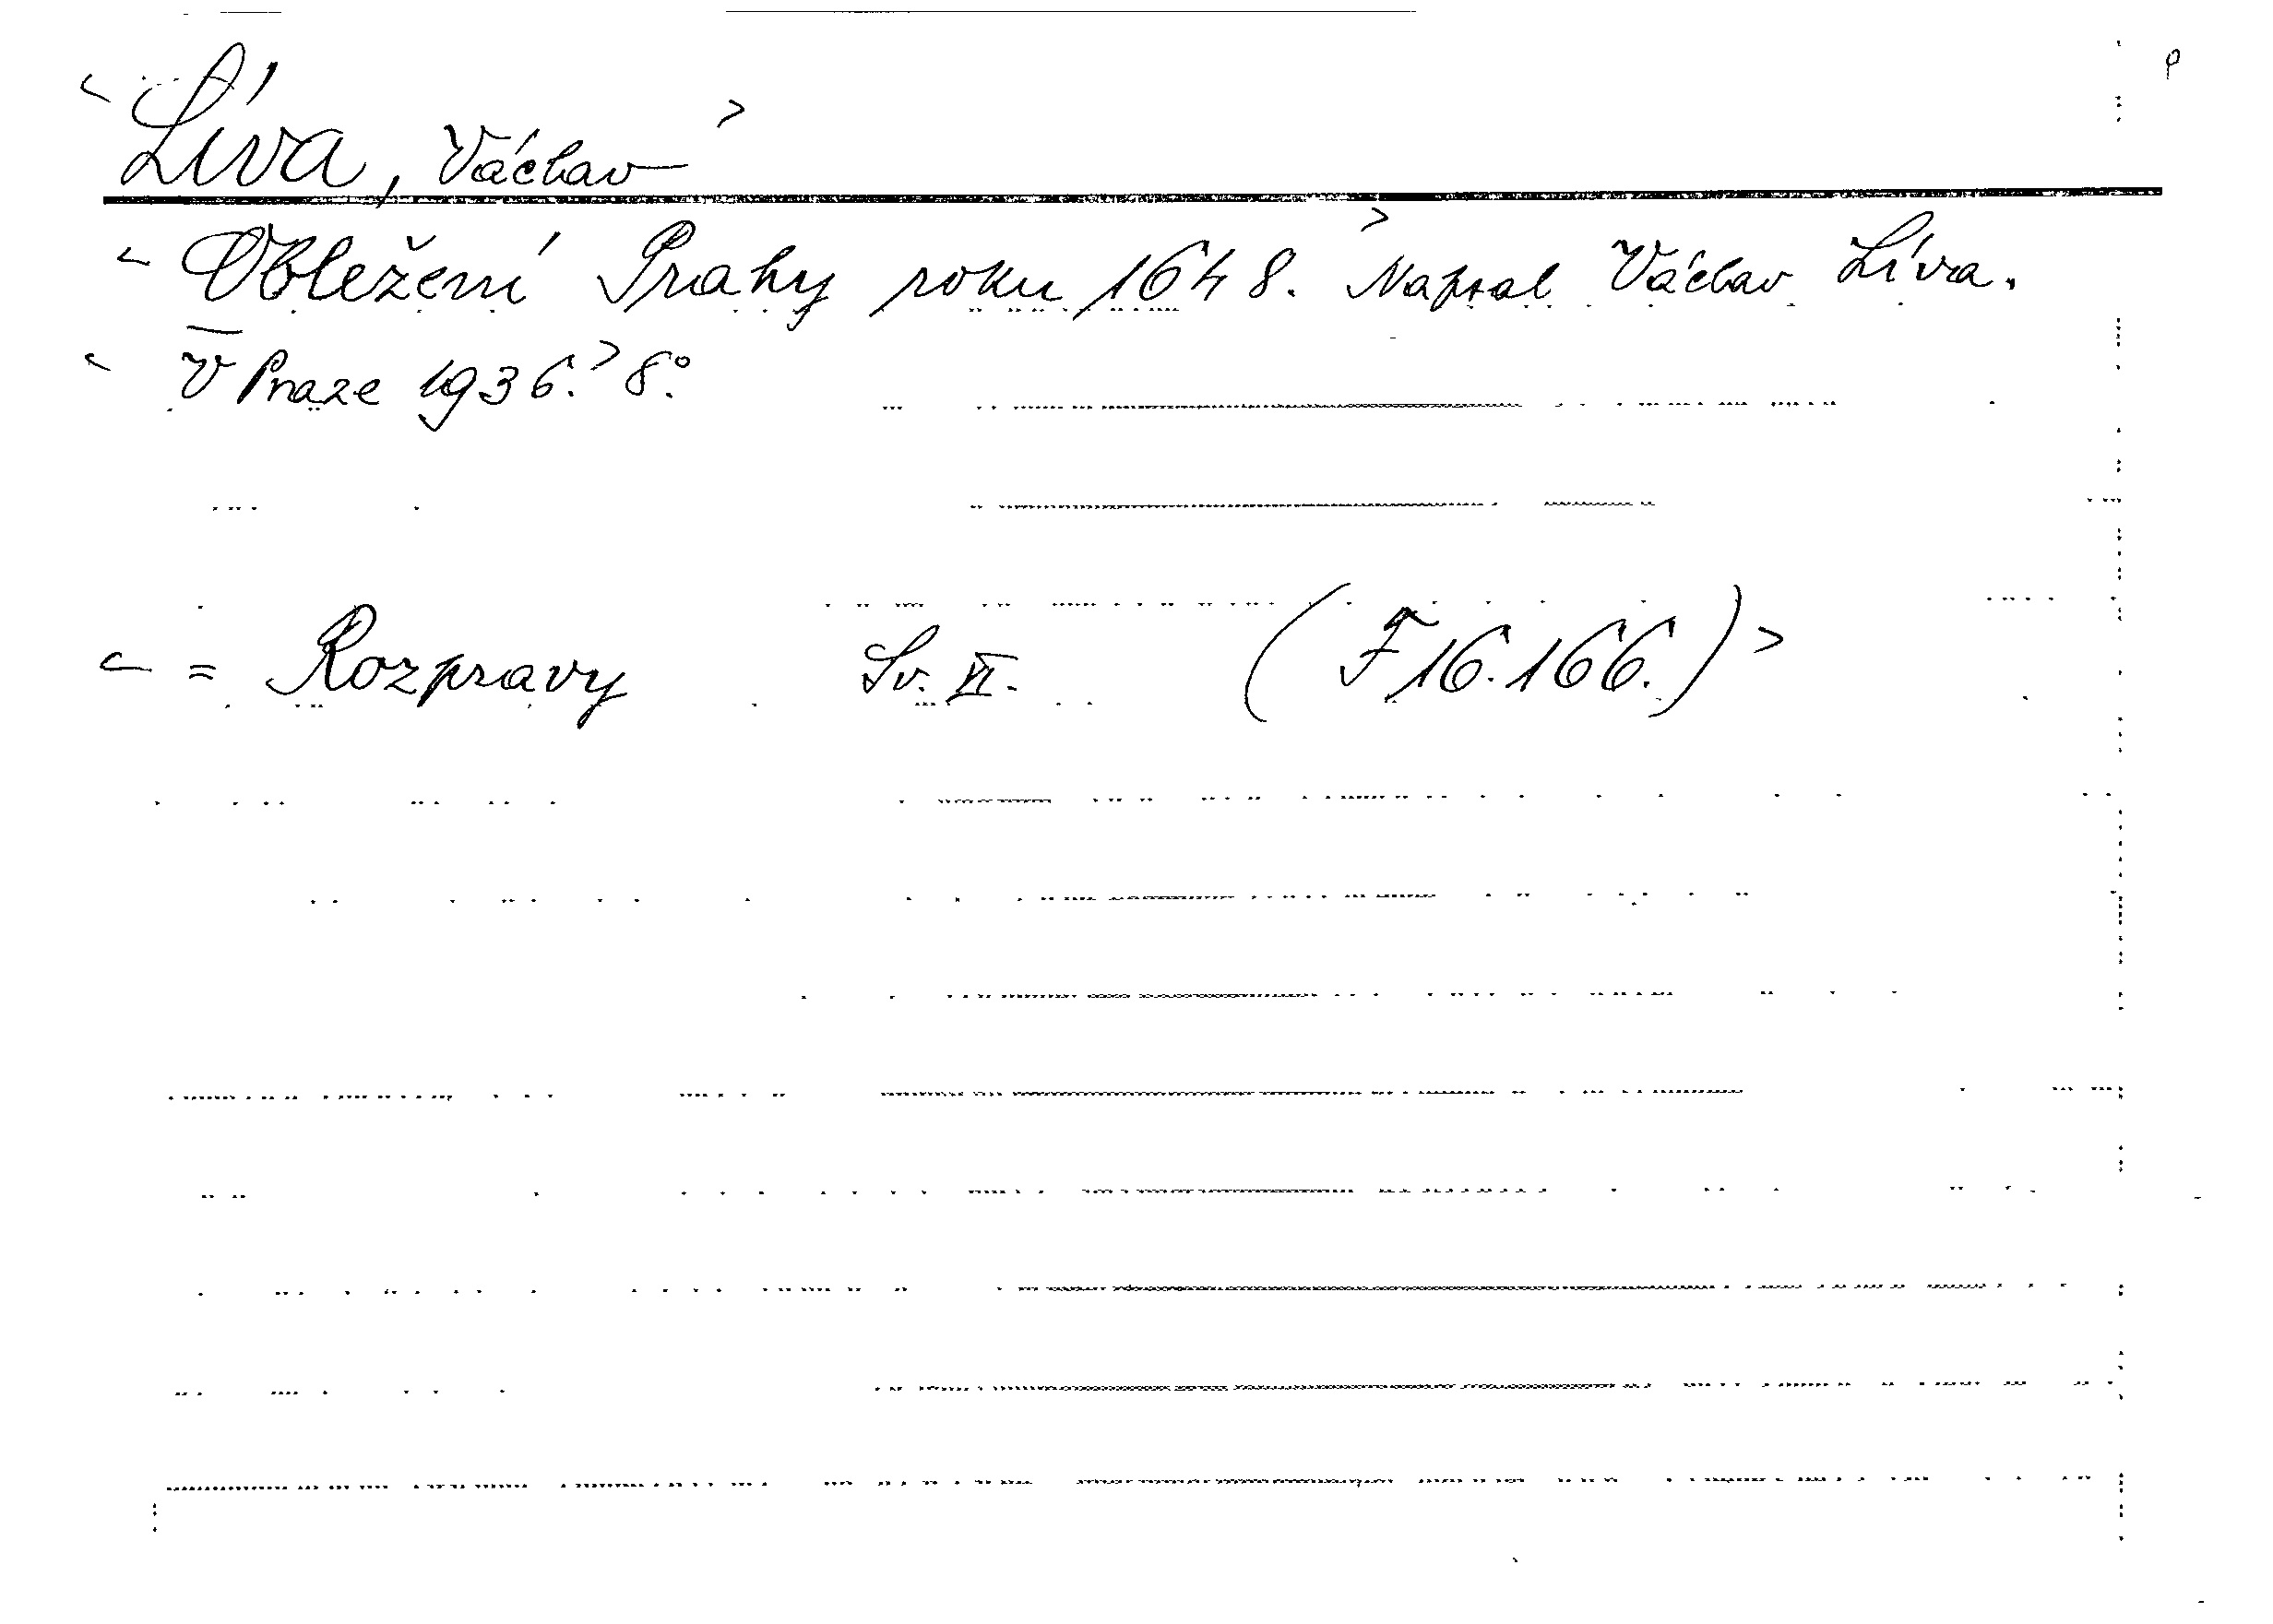 Líva, Václav
Obležení Prahy roku 1648. Napsal Václav Líva.
V Praze 1936. 8°.
= Rozpravy Sv. VI. (F 16.166.)